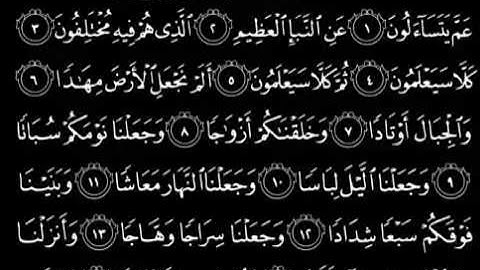 عَمَّ يَتَسَآءَلُونَ ١ عَنِ ٱلنَّبَإِ ٱلْعَظِيمِ ٢ ٱلَّذِى هُمْ فِيهِ مُخْتَلِفُونَ ٣
كَلَّا سَيَعْلَمُونَ ٤ ثُمَّ كَلَّا سَيَعْلَمُونَ ٥ أَلَمْ نَجْعَلِ ٱلْأَرْضَ مِهَٰدًا ٦
وَٱلْجِبَالَ أَوْتَادًا ٧ وَخَلَقْنَٰكُمْ أَزْوَٰجًا ٨ وَجَعَلْنَا نَوْمَكُمْ سُبَاتًا
٩ وَجَعَلْنَا ٱلَّيْلَ لِبَاسًا ١٠ وَجَعَلْنَا ٱلنَّهَارَ مَعَاشًا ١١ وَبَنَيْنَا
فَوْقَكُمْ سَبْعًا شِدَادًا ١٢ وَجَعَلْنَا سِرَاجًا وَهَّاجًا ١٣ وَأَنزَلْنَا